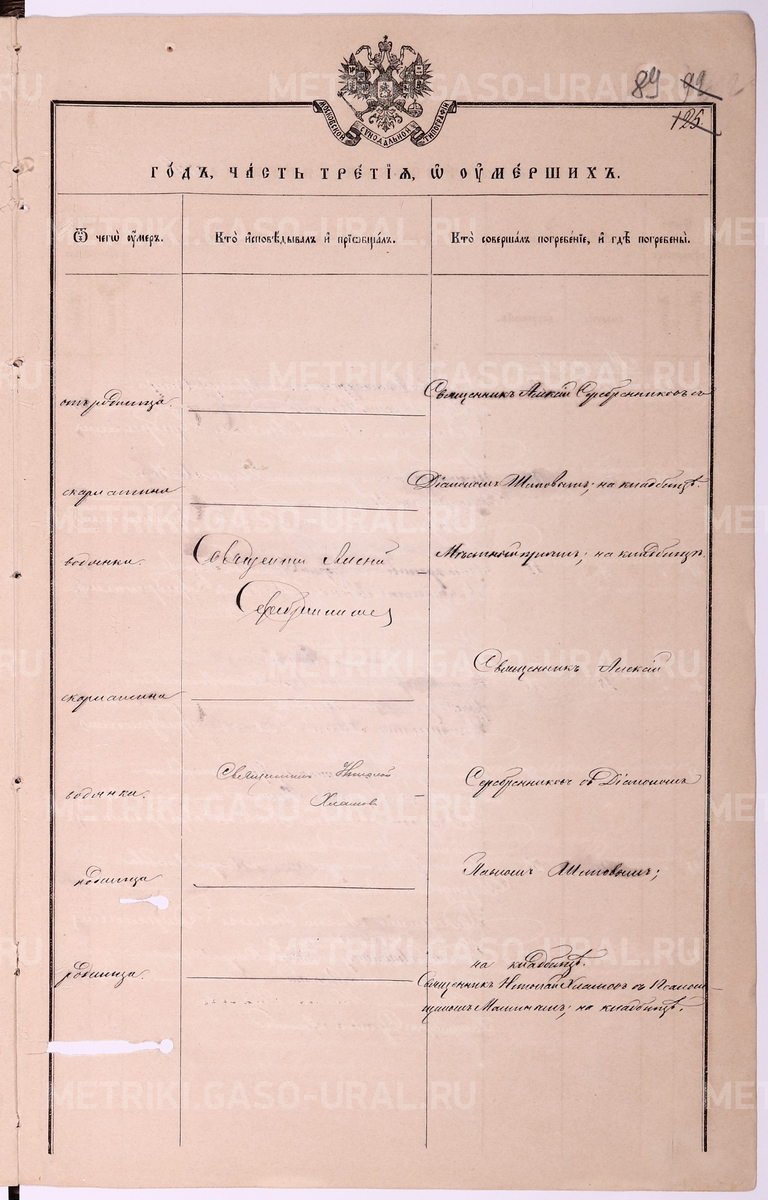 89 92
125
МОСКОВСКОЙ СѴНОДАЛЬНОЙ ТИПОГРАФІИ
ГО́ДЪ, ЧА́СТЬ ТРЕ́ТІѦ, Ѽ ОУ҆МЕ́РШИХЪ.
Ѿ чегѡ̀ оу҆́меръ.
Кто̀ и҆сповѣ́дывалъ и҆ прїѡбща́лъ.
Кто̀ соверша́лъ погребе́нїе, и҆ гдѣ̀ погребены̀.
отъ родимца.
Священникъ Алексій Серебренниковъ съ
скарлатина
Діакономъ Шиповымъ; на кладбищѣ.
водянки.
Священникъ Алексій
Мѣстный причтъ; на кладбищѣ.
Серебренниковъ
скарлатина
Священникъ Алексій
водянки.
Священникъ Николай
Хламовъ
Серебренниковъ съ Діакономъ
родимца
Шиповымъ;
родимца.
на кладбищѣ.
Священникъ Николай Хламовъ съ Псалом-
щикомъ на кладбищѣ.
METRIKI.GASO-URAL.RU